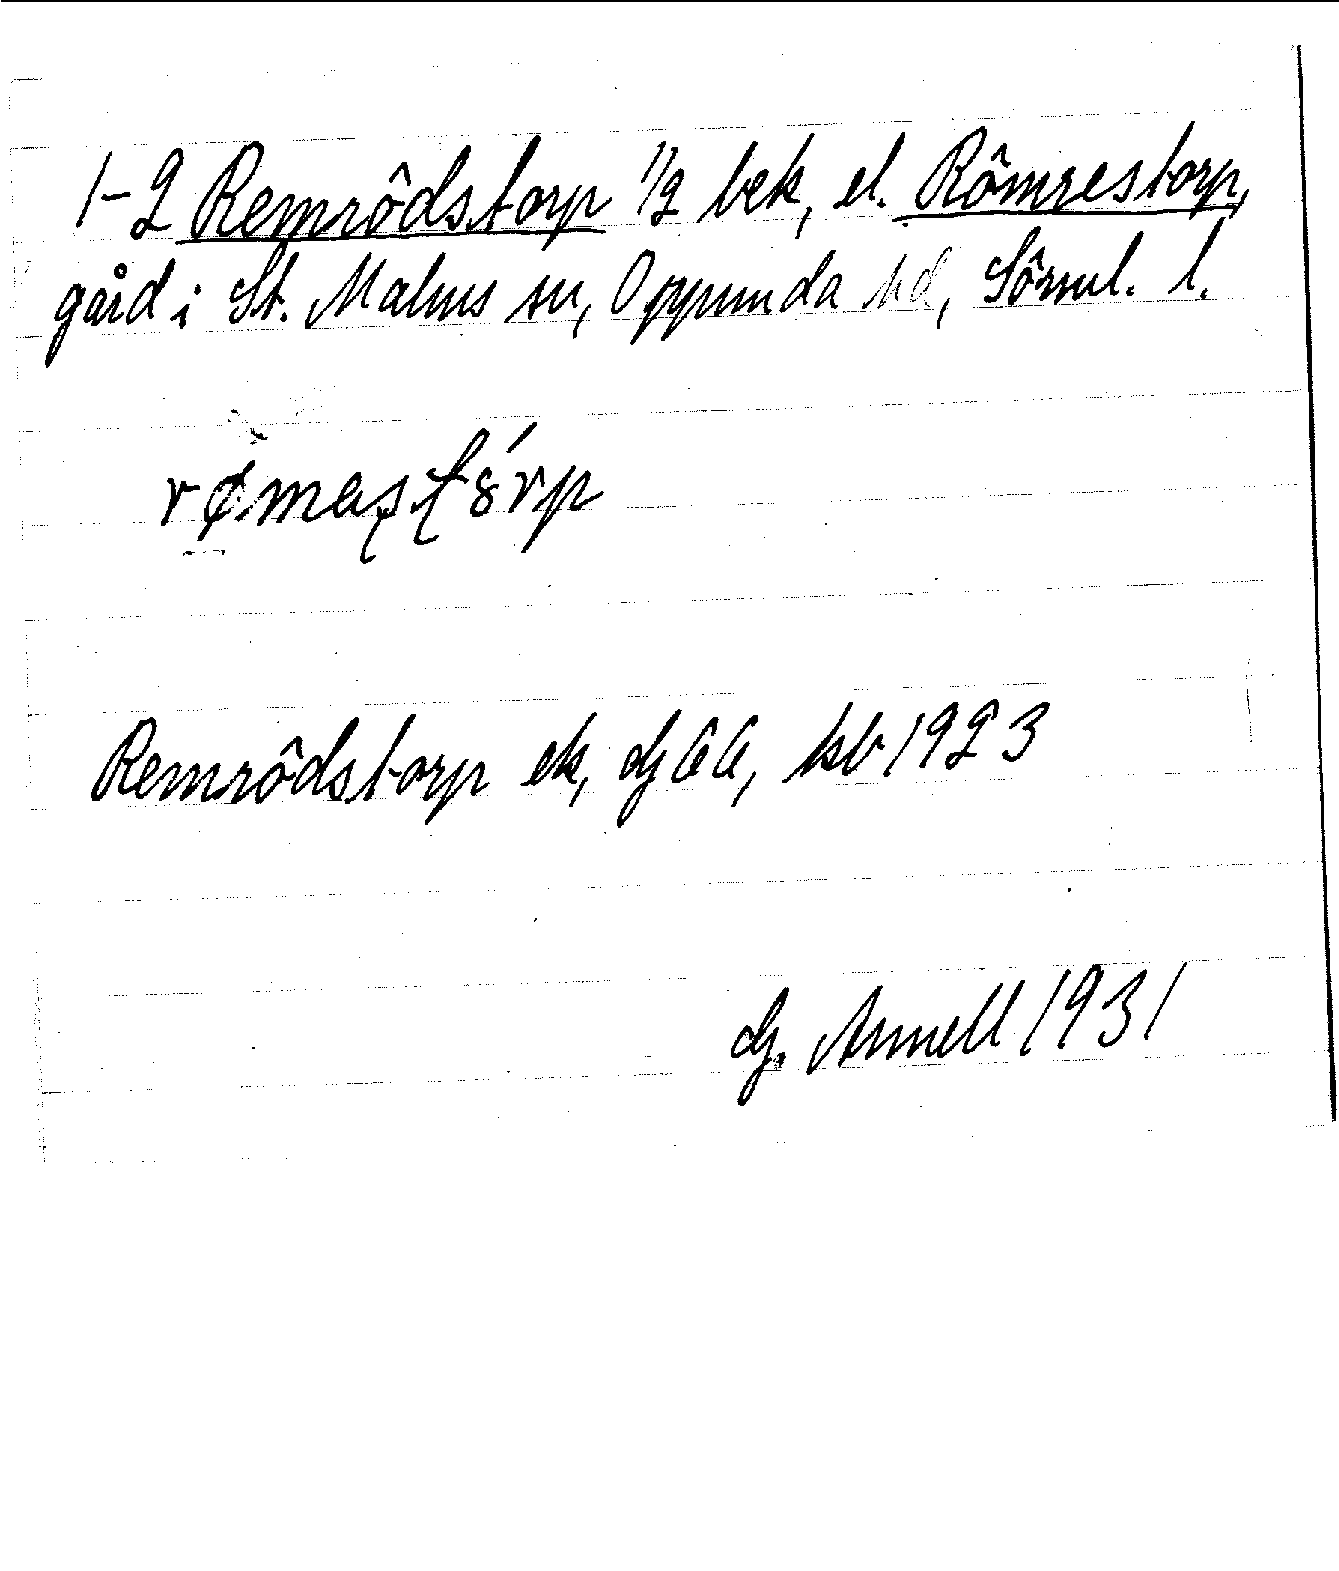 1-2 Remrödstorp 1/2 bek, el. Römrestorp,
gård i St. Malms sn, Oppunda hd, Sörml. l.
Remrödstorp ek, gj6G, kb 1923
Gj. Annell 1931